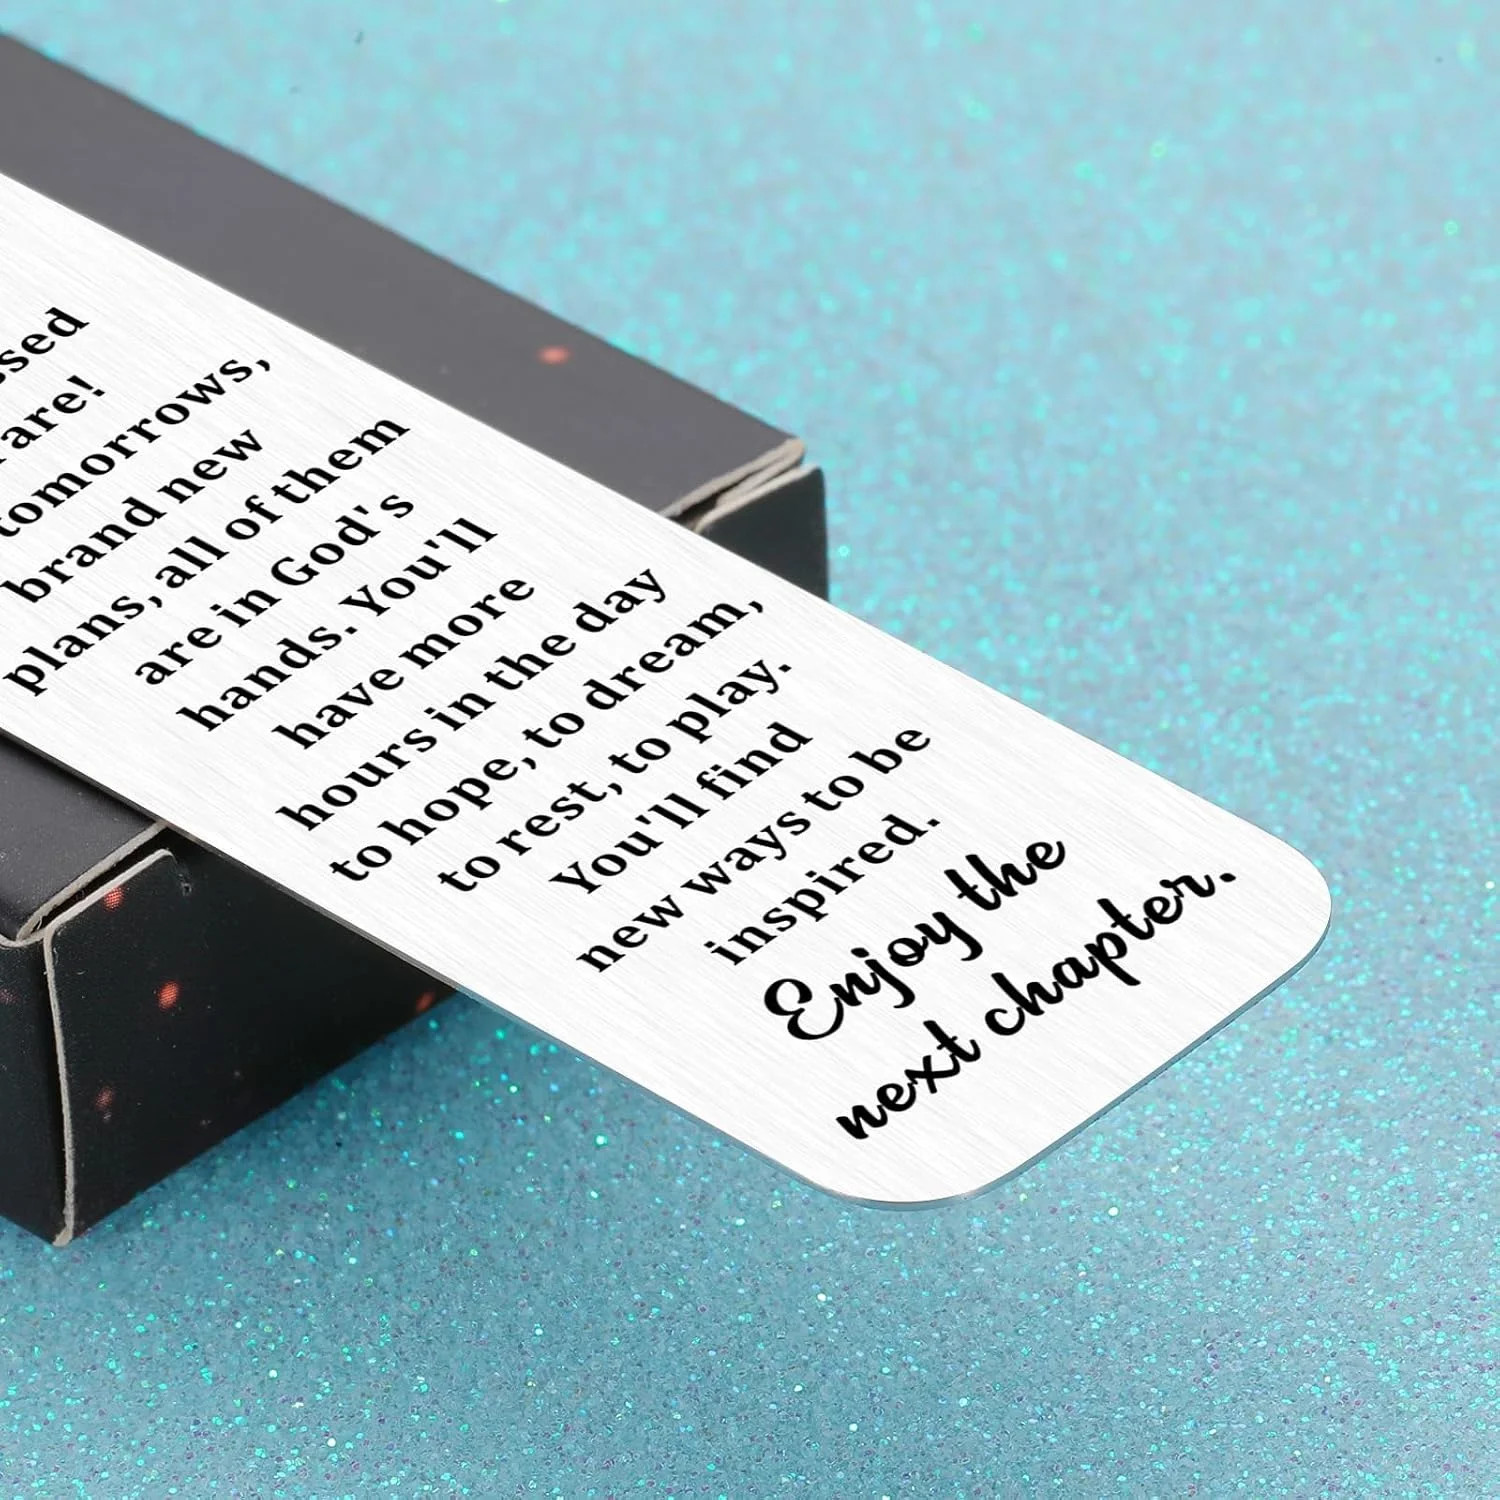 are!
tomorrows,
brand new
plans, all of them
are in God's
hands. You'll
have more
hours in the day
to hope, to dream,
to rest, to play.
You'll find
new ways to be
inspired.
Enjoy the
next chapter.